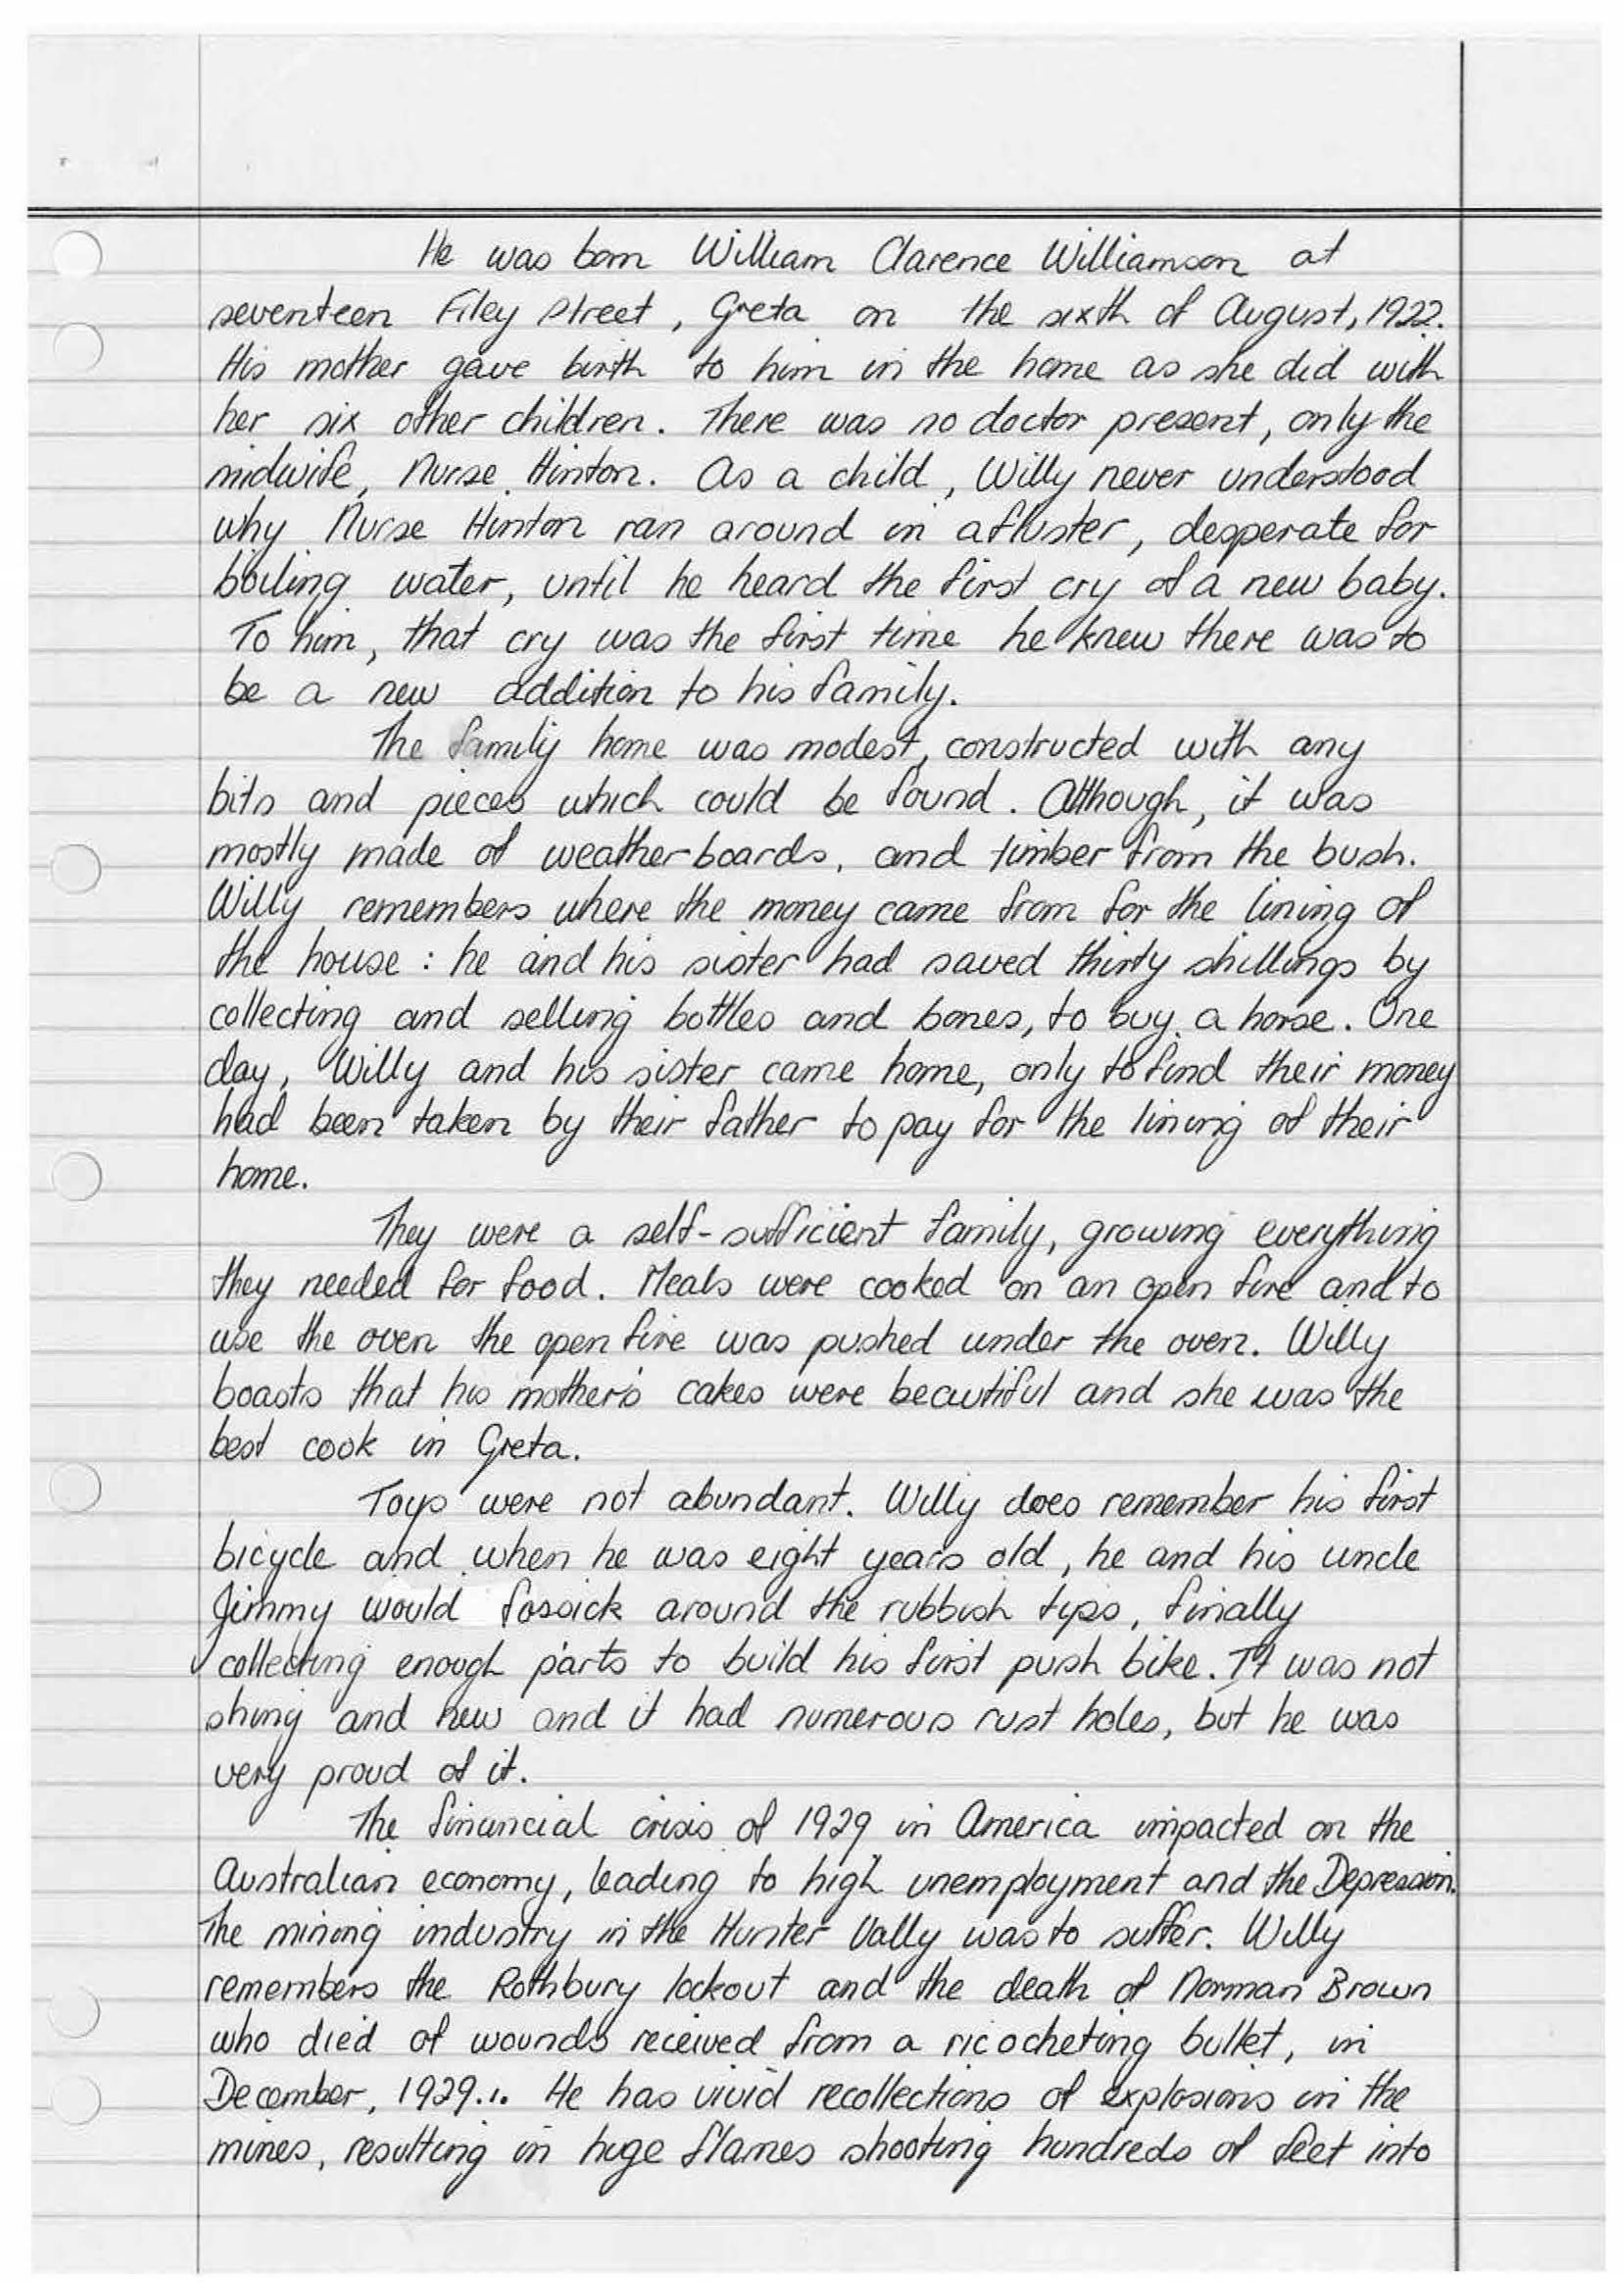 He was born William Clarence Williamson at
seventeen Filey Street, Greta on the sixth of August, 1922.
His mother gave birth to him in the home as she did with
her six other children. There was no doctor present, only the
midwife, Nurse Hinton. As a child, Willy never understood
why Nurse Hinton ran around in a fluster, desperate for
boiling water, until he heard the first cry of a new baby.
To him, that cry was the first time he knew there was to
be a new addition to his family.
The family home was modest, constructed with any
bits and pieces which could be found. Although, it was
mostly made of weatherboards, and timber from the bush.
Willy remembers where the money came from for the lining of
the house: he and his sister had saved thirty shillings by
collecting and selling bottles and bones, to buy a horse. One
day, Willy and his sister came home, only to find their money
had been taken by their father to pay for the lining of their
home.
They were a self-sufficient family, growing everything
they needed for food. Meals were cooked on an open fire and to
use the oven the open fire was pushed under the oven. Willy
boasts that his mother's cakes were beautiful and she was the
best cook in Greta.
Toys were not abundant. Willy does remember his first
bicycle and when he was eight years old, he and his uncle
Jimmy would fossick around the rubbish tips, finally
collecting enough parts to build his first push bike. It was not
shiny and new and it had numerous rust holes, but he was
very proud of it.
The financial crisis of 1929 in America impacted on the
Australian economy, leading to high unemployment and the Depression.
The mining industry in the Hunter Vally was to suffer. Willy
remembers the Rothbury lockout and the death of Norman Brown
who died of wounds received from a ricocheting bullet, in
December, 1929.1. He has vivid recollections of explosions in the
mines, resulting in huge flames shooting hundreds of feet into